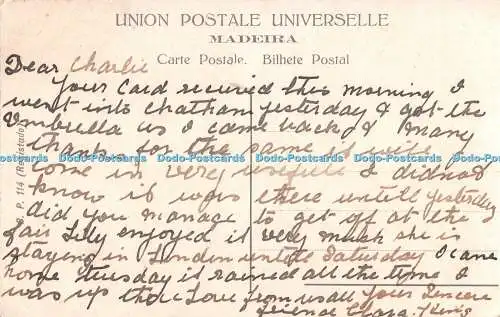 UNION POSTALE UNIVERSELLE
MADEIRA
Carte Postale. Bilhete Postal
Dear Charlie
Your Card recieved this morning I
went into Chatham yesterday & got the
Umbrella as I came back & many
thanks for the same it will
come in very usefull I did not
know it was there untill yesterday
did you manage to get off at the
fair Lily enjoyed it very much she is
staying in London untill Saturday I came
home tuesday it rained all the time I
was up there Love from us all Your Sincere
friend Clara
B. P. 114 (Registado)
Dodo-Postcards Dodo-Postcards Dodo-Postcards Dodo-Postcards Dodo-Postcards